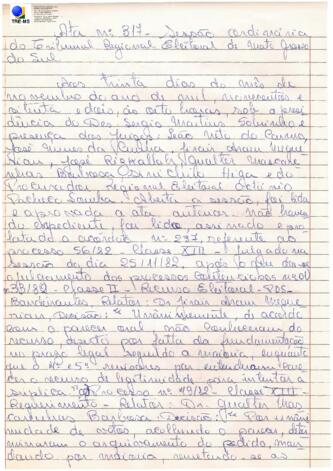 TRE-MS
Ata nº 317 - Sessão ordinária
do Tribunal Regional Eleitoral de Mato Grosso
do Sul
Aos trinta dias do mês de
novembro do ano de mil, novecentos e
oitenta e dois às oito horas, sob a presi
dência do Des. Sergio Martins Sobrinho e
presença dos Juízes: Leão Neto do Carmo,
José Nunes da Cunha, Jirair Aram Megue
rian, José Rizkallah, Gualter Mascare
nhas Barbosa, Higa e do
Procurador Regional Eleitoral
Pacheco Lomba. Aberta a sessão, foi lida
e aprovada a ata anterior. Não haven
do expediente, foi lido, assinado e pro
latado o acórdão nº 237, referente ao
processo 56/82 - Classe XIII - julgado na
sessão do dia 25/11/82, após o fim do
julgamento dos processos
33/82 - Classe II - Recurso Eleitoral - PDS -
Bandeirantes, Relator: Dr. Jirair Aram Megue
rian, Decisão: "Unanimemente, de acordo
com o parecer oral, não conheceram do
recurso, por falta da fundamentação
no prazo legal segundo a maioria, enquanto
que o 4º e 5º por entenderem
der o recurso de legitimidade para intentar a
súplica" Processo nº 49/82 - Classe XIII -
Requerimento - Relator: Dr. Gualter Mas
carenhas Barbosa - Decisão: "Por unani
midade de votos acolhendo o parecer, deter
minaram o arquivamento do pedido, man
dando, por maioria, remetendo-se as